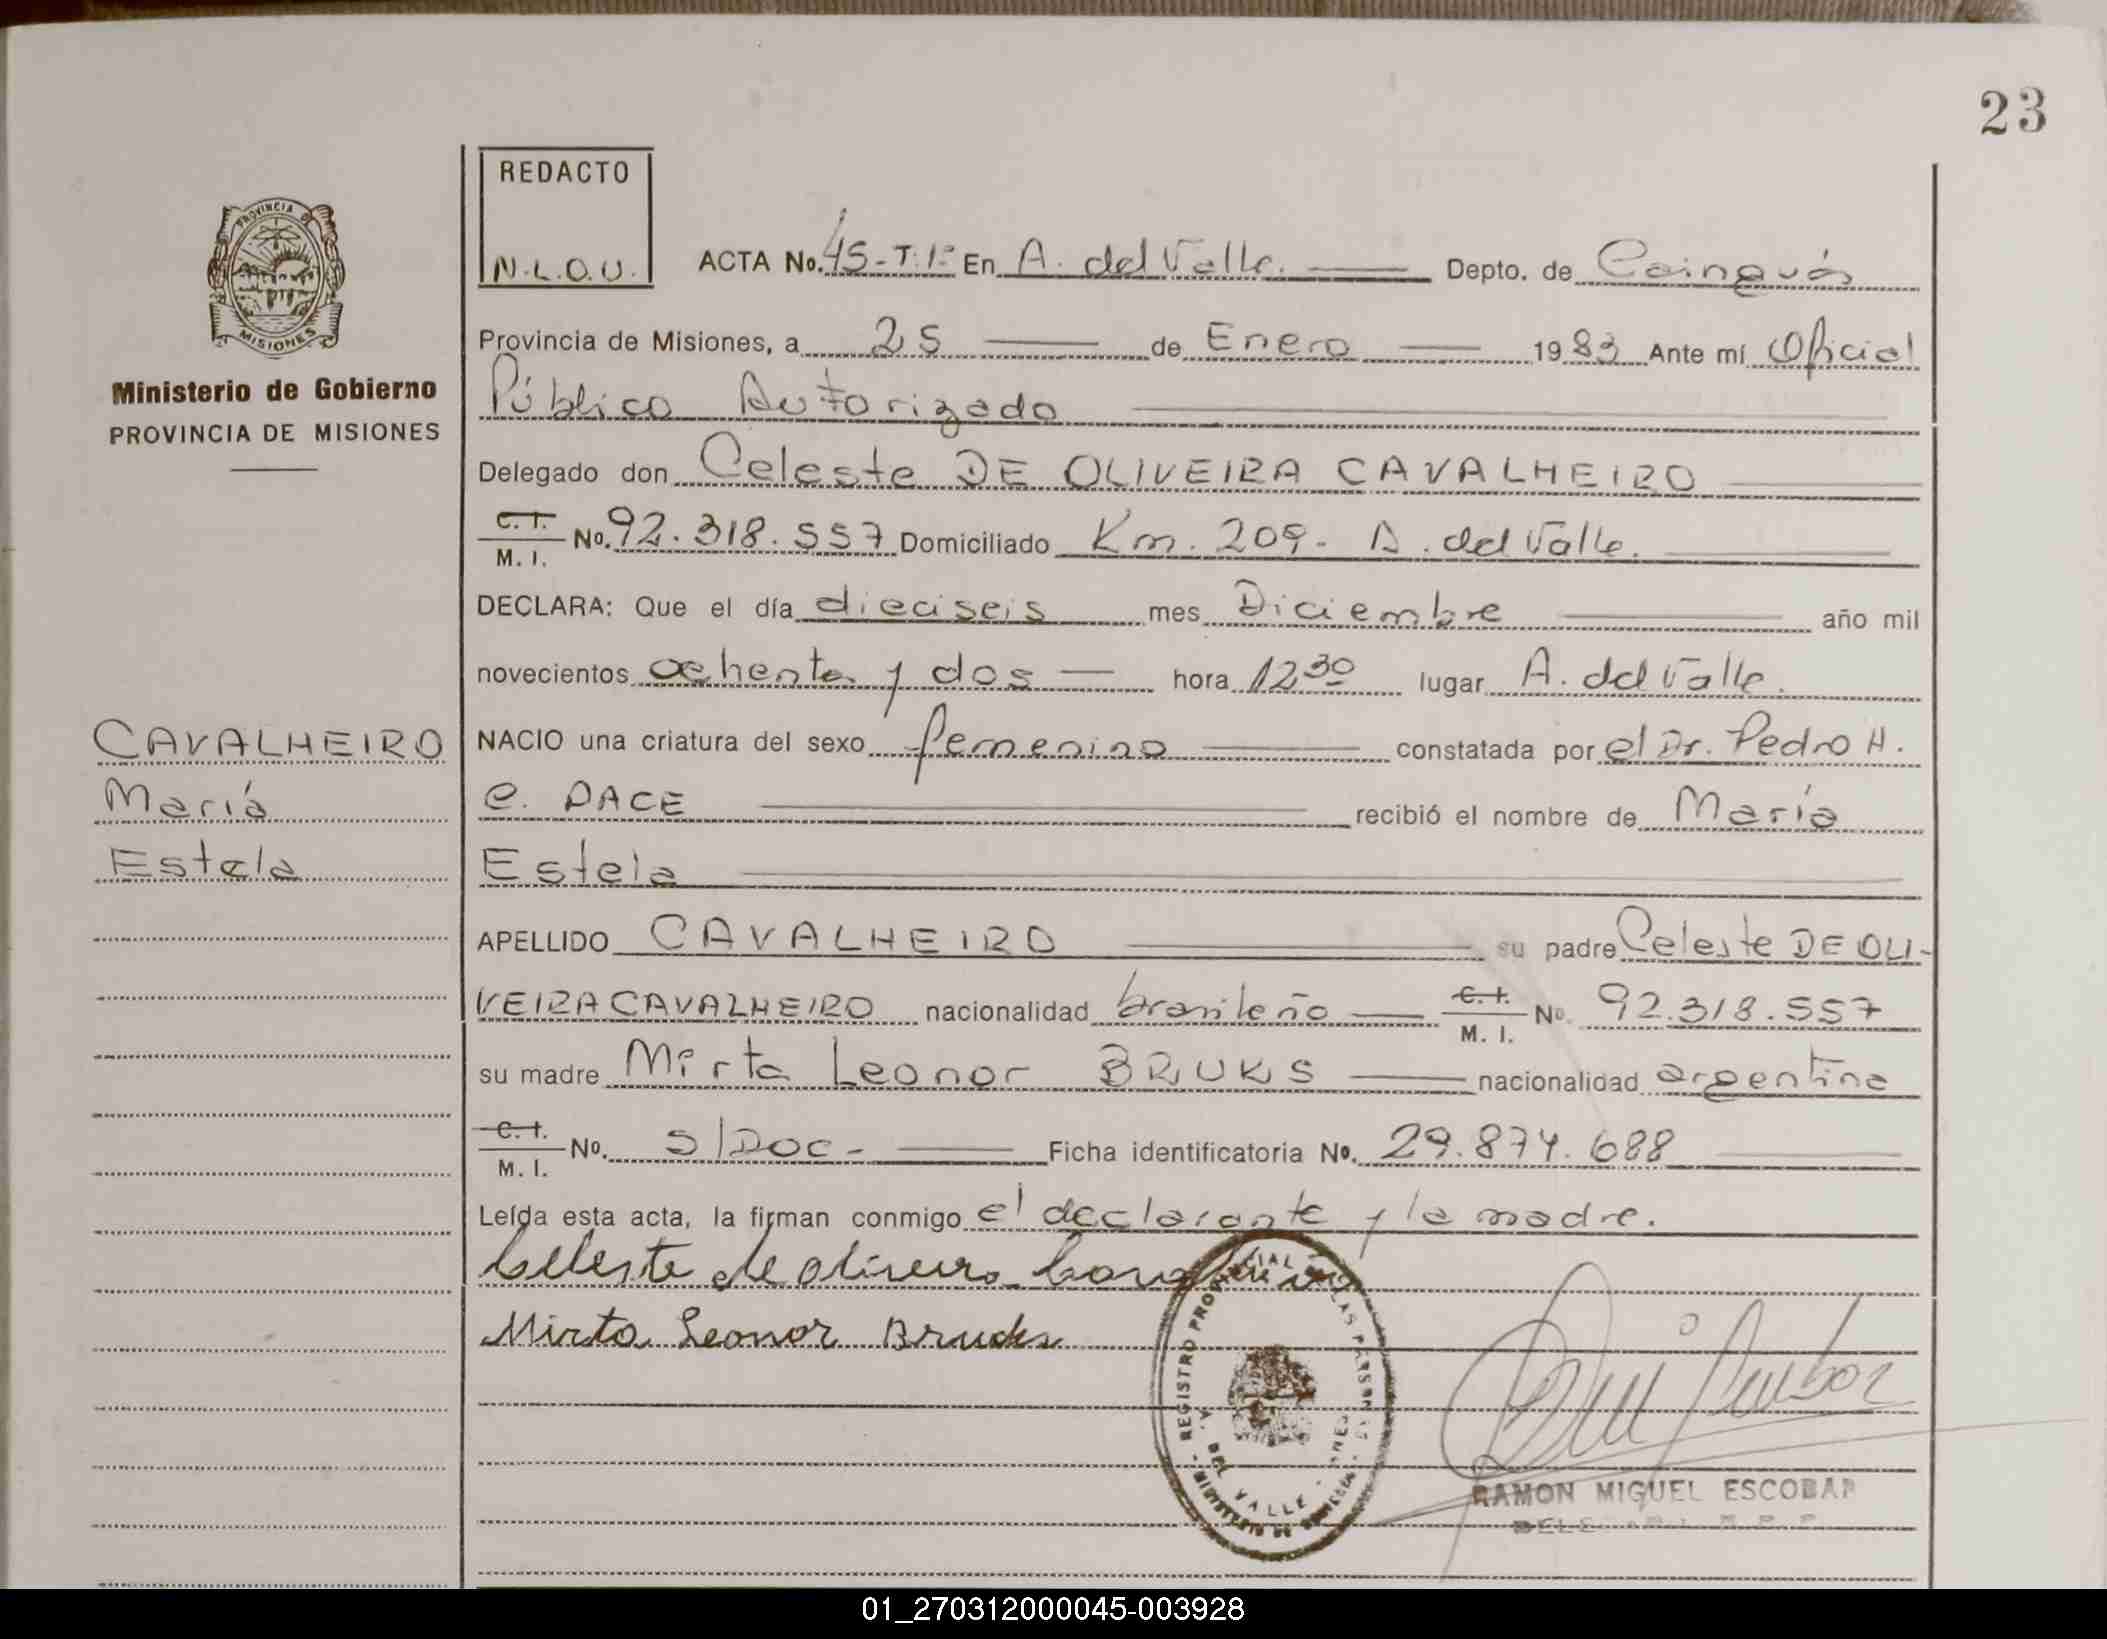 23
REDACTO
N.L.O.U.
PROVINCIA DE
MISIONES
Ministerio de Gobierno
PROVINCIA DE MISIONES
ACTA No. 45-T.1º En A. del Valle. Depto. de Cainguás
Provincia de Misiones, a 25 de Enero 1983 Ante mí Oficial
Público Autorizado
Delegado don Celeste DE OLIVEIRA CAVALHEIRO
C. I.
M. I. No. 92.318.557 Domiciliado Km. 209- A. del Valle.
DECLARA: Que el día dieciseis mes Diciembre año mil
novecientos ochenta y dos hora 12 30 lugar A. del Valle.
CAVALHEIRO
María
Estela
NACIO una criatura del sexo femenino constatada por el Dr. Pedro H.
C. DACE recibió el nombre de María
Estela
APELLIDO CAVALHEIRO su padre Celeste DE OLI-
VEIRA CAVALHEIRO nacionalidad brasileño C. I. M. I. No. 92.318.557
su madre Mirta Leonor BRUKS nacionalidad argentina
C. I.
M. I. No. S/DOC- Ficha identificatoria No. 29.874.688
Leída esta acta, la firman conmigo el declarante y la madre.
Celeste de Oliveira Cavalheiro
Mirta Leonor Brucks
REGISTRO PROVINCIAL DE LAS PERSONAS
A. DEL VALLE - MNES
RAMON MIGUEL ESCOBAR
01_270312000045-003928